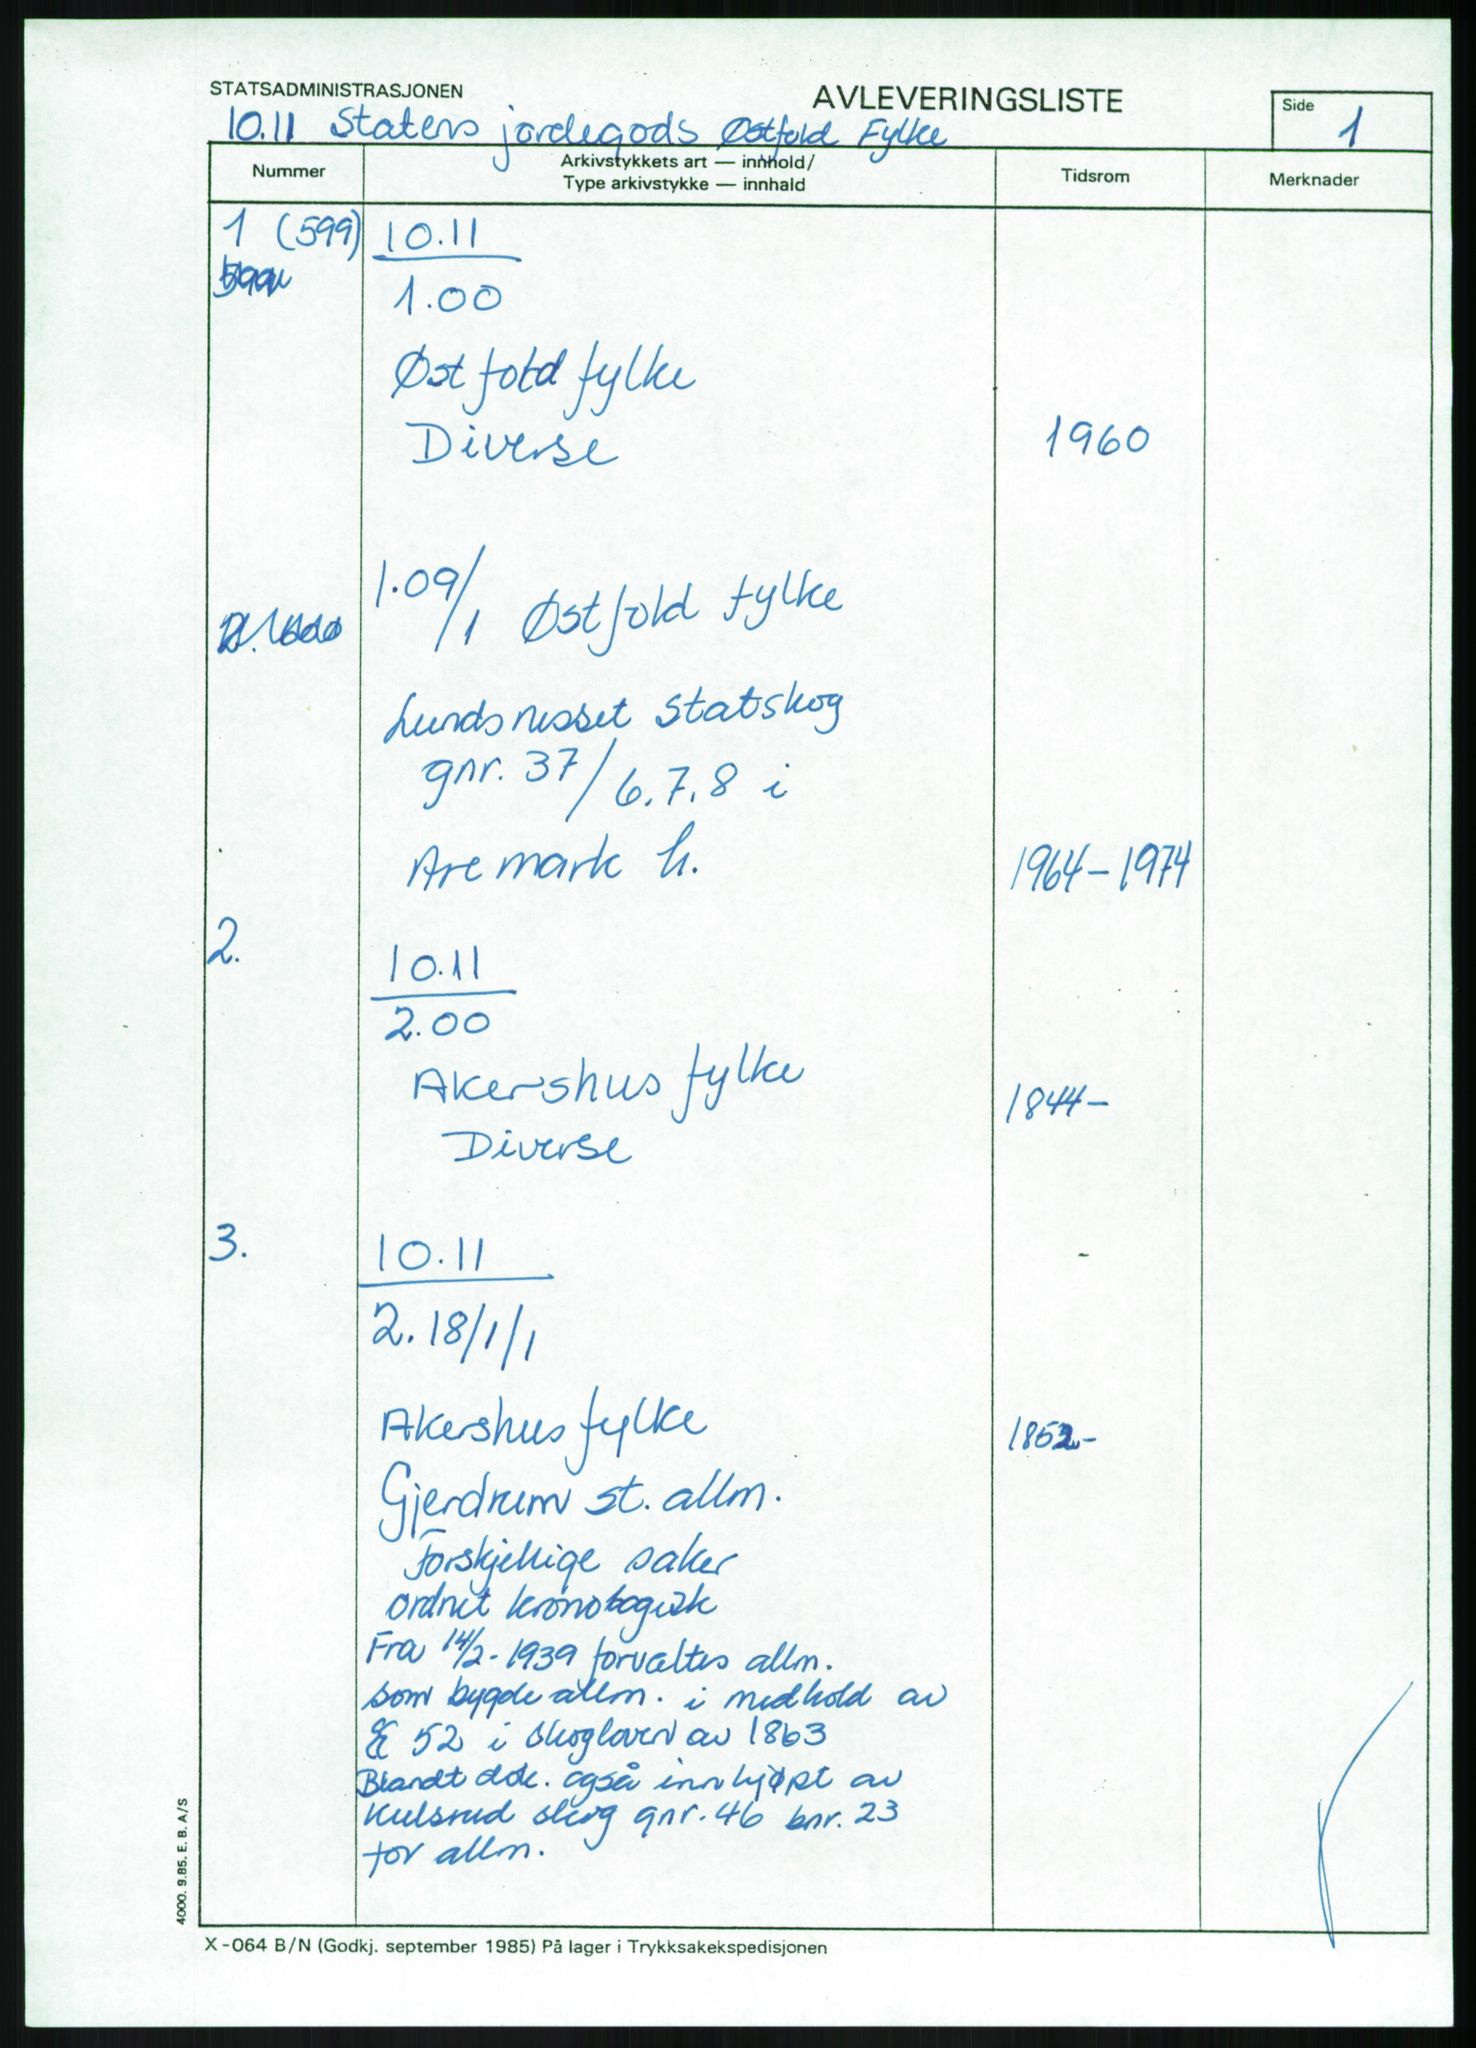 STATSADMINISTRASJONEN
AVLEVERINGSLISTE
Side 1
10.11 Statens jordegods Østfold Fylke
Nummer
Arkivstykkets art — innhold/
Type arkivstykke — innhald
Tidsrom
Merknader
1 (599) 10.11
1.00
Østfold fylke
Diverse 1960
1.09/1 Østfold fylke
Lundsnesset Statskog
gnr. 37/6.7.8 i
Aremark h. 1964-1974
2.
10.11
2.00
Akershus fylke 1844-
Diverse
3. 10.11
2.18/1/1
Akershus fylke 1852-
Gjerdrum st. allm.
Forskjellige saker
ordnet kronologisk
Fra 14/2-1939 forvaltes allm.
som bygdeallm. i medhold av
§ 52 i skogloven av 1863
Blandt dok. også innkjøpt av
Kulsrud skog gnr. 46 bnr. 23
for allm.
4000. 9.85. E. B. A/S
X-064 B/N (Godkj. september 1985) På lager i Trykksakekspedisjonen